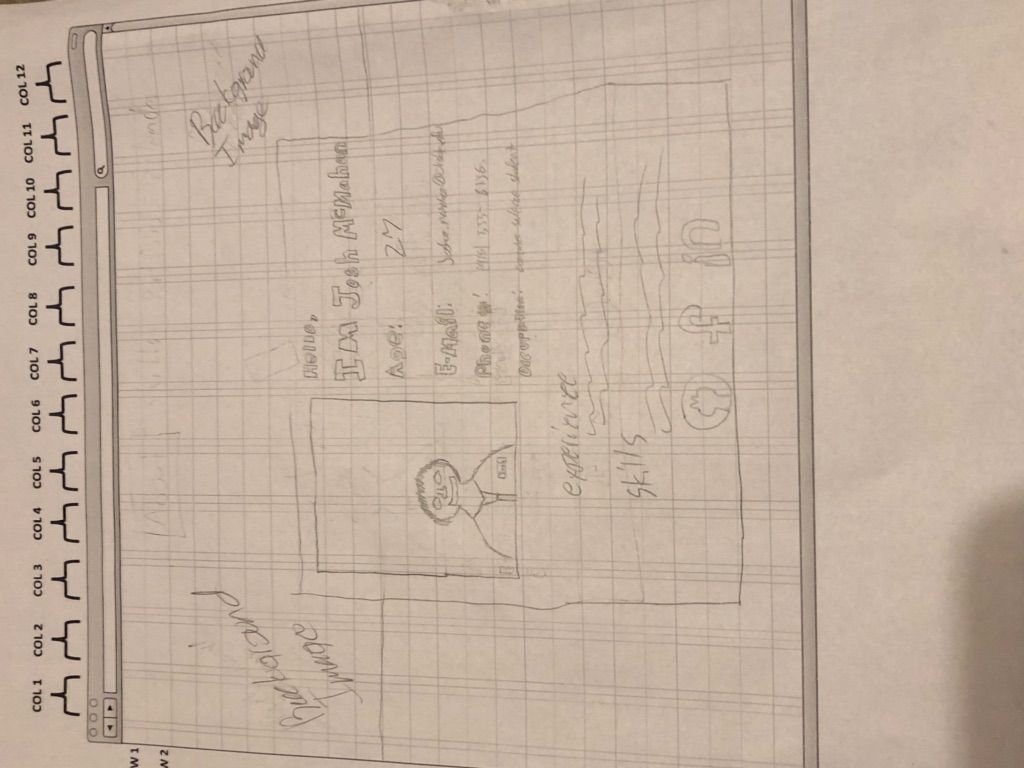 COL 1 COL 2 COL 3 COL 4 COL 5 COL 6 COL 7 COL 8 COL 9 COL 10 COL 11 COL 12
W 1
W 2
Background
Image
Background
Image
Hello,
Im Josh McMahan
Age: 27
E-Mail:
Phone #:
Occupation: student
experience
skills
f in